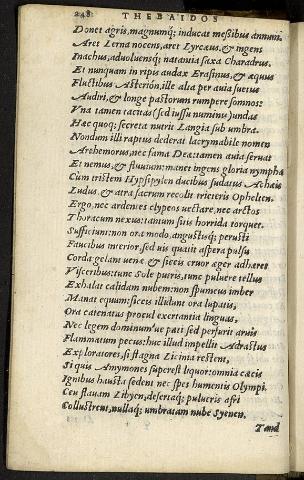 248 THEBAIDOS
Donet agris, magnumq́; inducat messibus annum.
Aret Lerna nocens, aret Lyrcæus, & ingens
Inachus, aduoluensq́; natantia saxa Charadrus.
Et nunquam in ripis audax Erasinus, & æquus
Fluctibus Asterión, ille alta per auia suetus
Audiri, & longe pastorum rumpere somnos:
Vna tamen tacitas (sed iussu numinis) undas
Hæc quoq; secreta nutrit Langia sub umbra.
Nondum illi raptus dederat lacrymabile nomen
Archemorus, nec fama Deæ: tamen auia seruat
Et nemus, & fluuium: manet ingens gloria nympha
Cùm tristem Hypsipylen ducibus sudatus Achais
Ludus, & atra sacrum recolit trieteris Ophelten.
Ergo nec ardentes clypeos uectare, nec arctos
Thoracum nexus: tantum sitis horrida torquet.
Sufficiunt: non ora modò, angustisq́; perusti
Faucibus interior, sed uis quatit aspera pulsu
Corda: gelant uenæ & siccis cruor æger adhæret
Visceribus: tunc Sole putris, tunc puluere tellus
Exhalat calidam nubem: non spumeus imber
Manat equum: siccis illidunt ora lupatis,
Ora catenatas procul exertantia linguas,
Nec legem dominum'ue pati sed perfurit aruis
Flammatum pecus: huc illud impellit Adrastus
Exploratores, si stagna Licinia restent,
Si quis Amymones superest liquor: omnia cæcis
Ignibus hausta sedent nec spes humentis Olympi.
Ceu flauam Libyen, desertaq́; pulueris afri
Collustrent, nullaq́; umbratam nube Syenen.
Tand